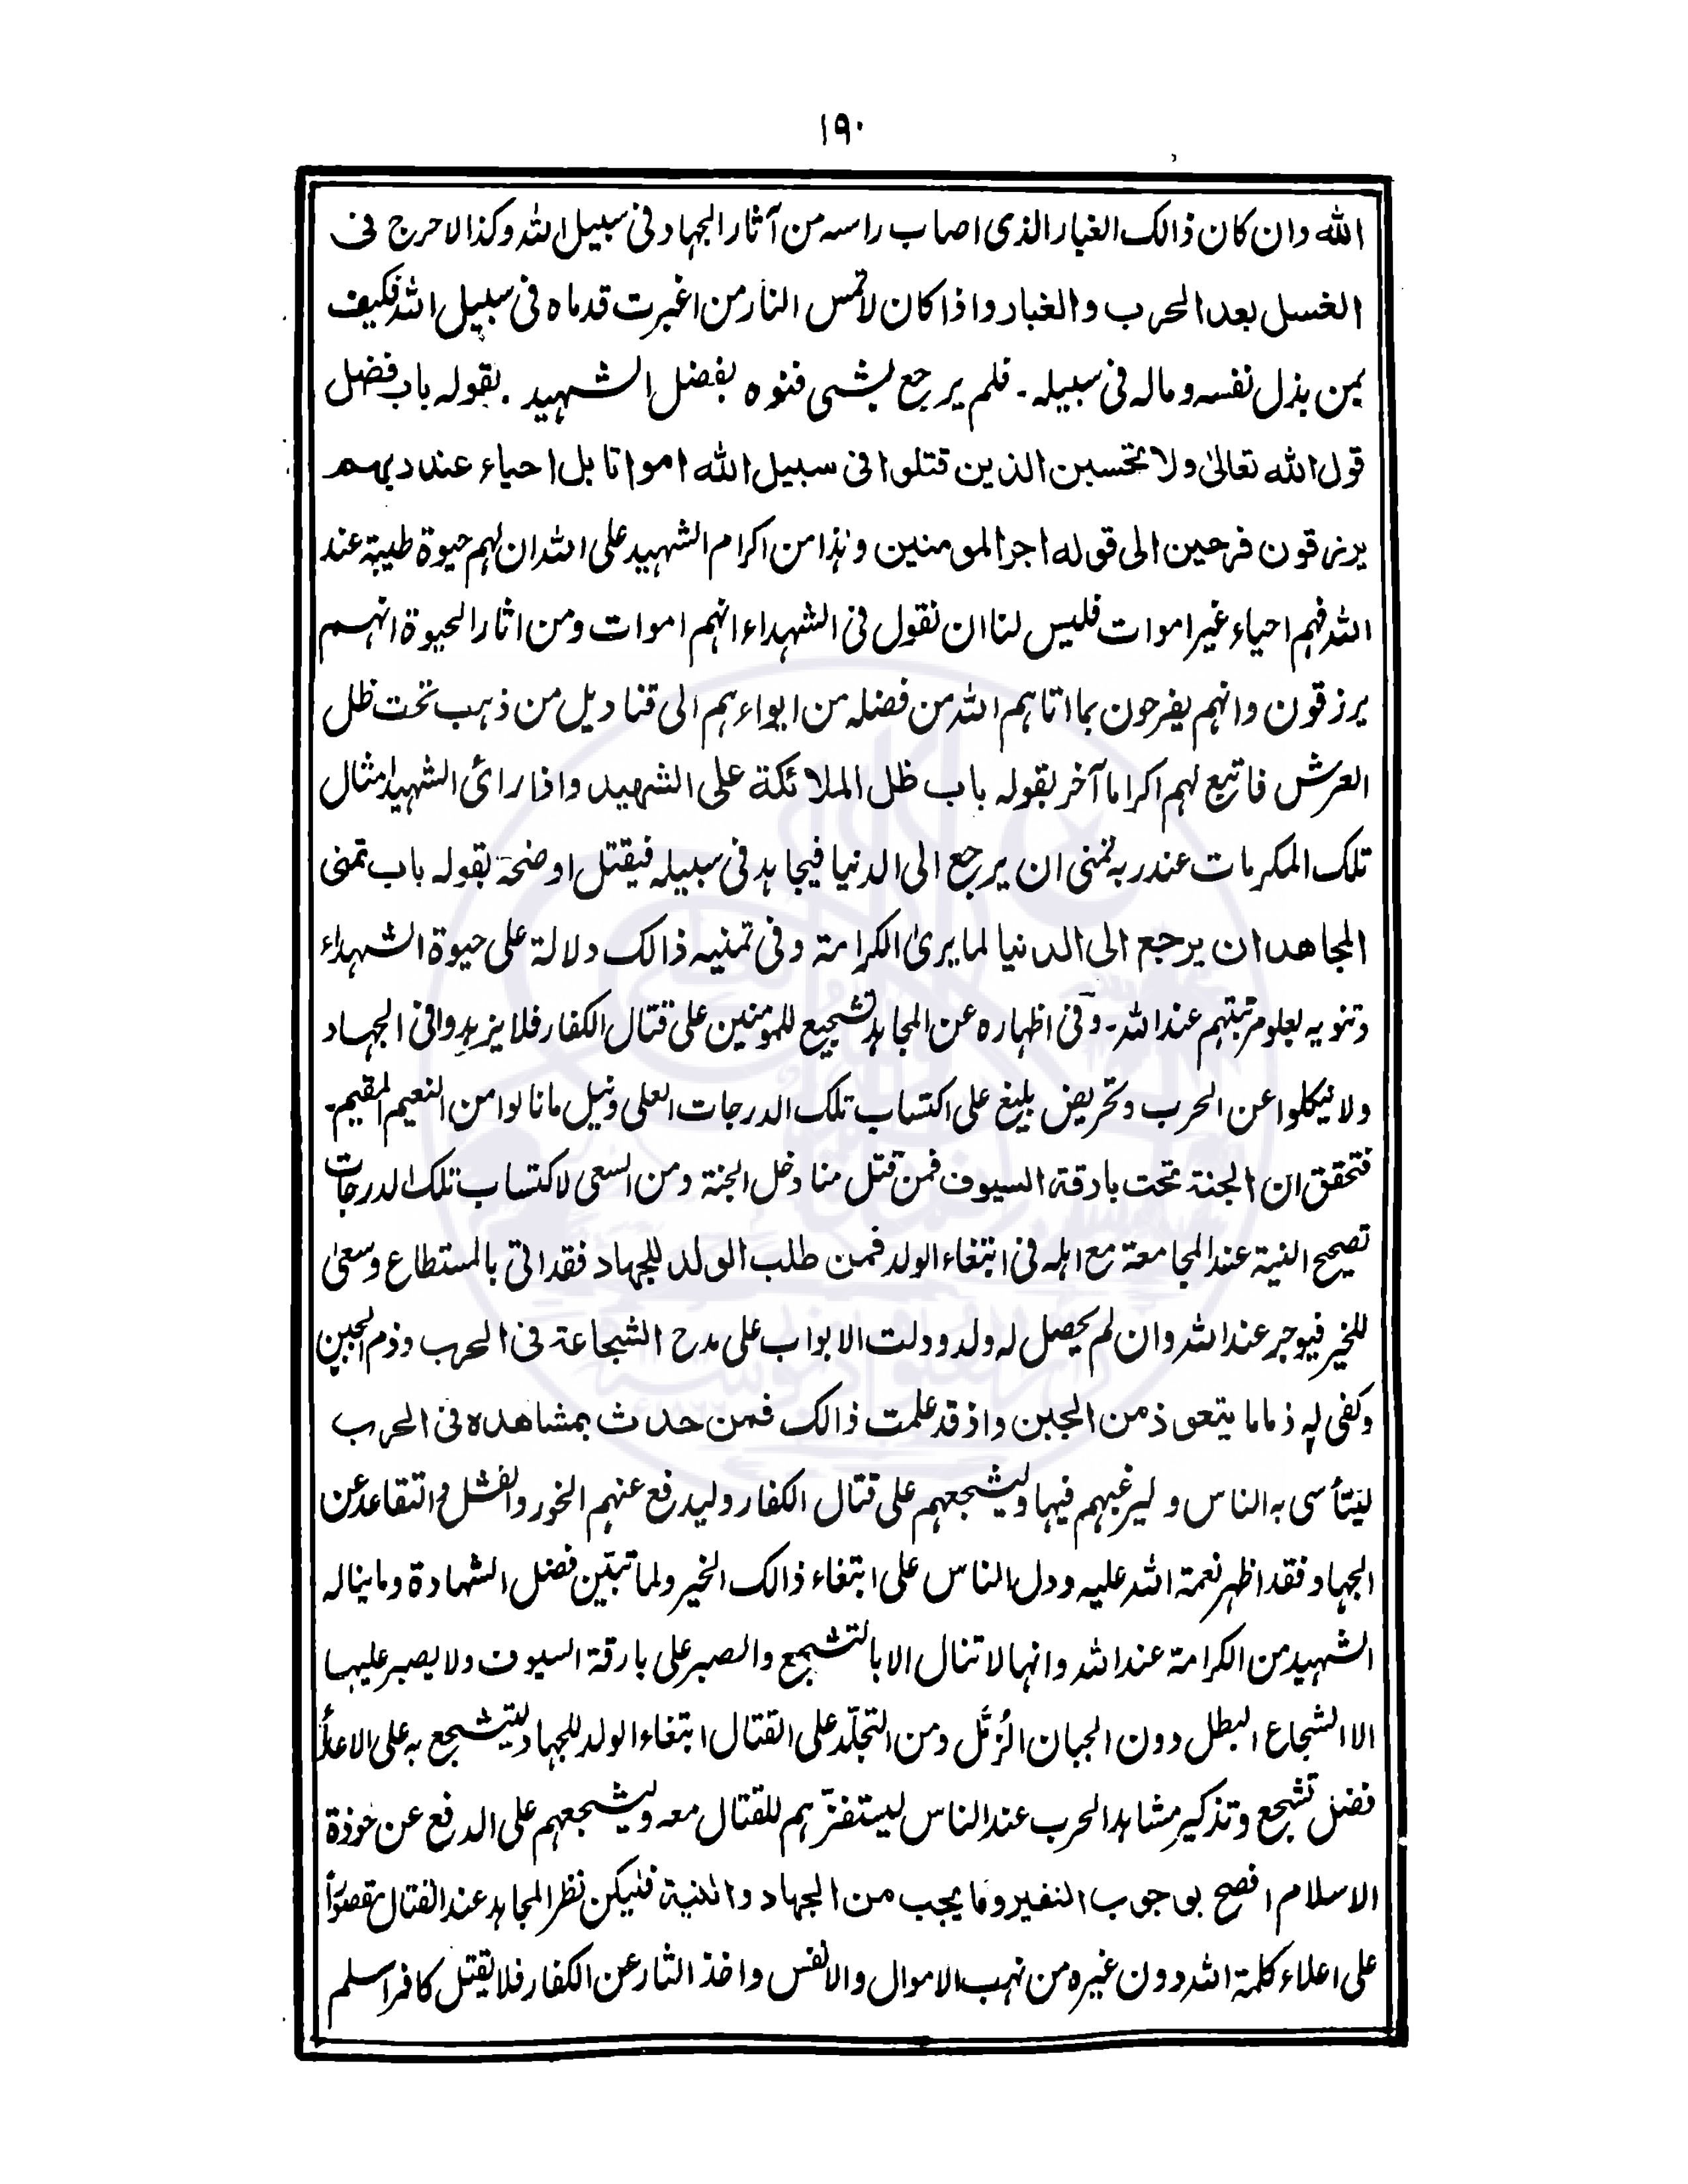 ١٩٠
الله وان كان ذالك الغبار الذى اصاب راسه من آثار الجهاد فى سبيل الله وكذا لاحرج فى
الغسل بعد الحرب والغبار واذا كان لاتمس النار من اغبرت قدماه فى سبيل الله فكيف
بمن بذل نفسه وماله فى سبيله ۔ فلم يرجع بشىء فنوه بفضل الشهيد . بقوله باب فضل
قول الله تعالىٰ ولا تحسبن الذين قتلوا فى سبيل الله امواتا بل احياء عند ربهم
يرزقون فرحين الى قوله اجر المومنين وهذا من اكرام الشهيد على الله ان لهم حيوة طيبة عند
الله فهم احياء غير اموات فليس لنا ان نقول فى الشهداء انهم اموات ومن اثار الحيوة انهم
يرزقون وانهم يفرحون بما اتاهم الله من فضله من ايواءهم الى قناديل من ذهب تحت ظل
العرش فاتبع لهم اكراما آخر بقوله باب ظل الملائكة على الشهيد واذا رائ الشهيد امثال
تلك المكرمات عند ربه تمنى ان يرجع الى الدنيا فيجاهد فى سبيله فيقتل اوضحه بقوله باب تمنى
المجاهد ان يرجع الى الدنيا لما يرىٰ الكرامة وفى تمنيه ذالك دلالة على حيوة الشهداء
وتنويه بعلو مرتبتهم عند الله ۔ وفى اظهاره عن المجاهد تشجيع للمومنين على قتال الكفار فلا يزهدوا فى الجهاد
ولا ينكلوا عن الحرب وتحريض بليغ على اكتساب تلك الدرجات العلى ونيل ما نالوا من النعيم المقيم ۔
فتحقق ان الجنة تحت بارقة السيوف فمن قتل منا دخل الجنة ومن السعى لاكتساب تلك الدرجات
تصحيح النية عند المجامعة مع اهله فى ابتغاء الولد فمن طلب الولد للجهاد فقد اتى بالمستطاع وسعىٰ
للخير فيوجر عند الله وان لم يحصل له ولد ودلت الابواب على مدح الشجاعة فى الحرب وذم الجبن
وكفى له ذما ما يتعوذ من الجبن واذ قد علمت ذالك فمن حدث بمشاهده فى الحرب
ليتأسى به الناس وليرغبهم فيها وليشجعهم على قتال الكفار وليدفع عنهم الخور والفشل والتقاعد عن
الجهاد فقد اظهر نعمة الله عليه ودل الناس على ابتغاء ذالك الخير ولما تبيّن فضل الشهادة وما يناله
الشهيد من الكرامة عند الله وانها لا تنال الا بالتشجع والصبر على بارقة السيوف ولا يصبر عليها
الا الشجاع البطل دون الجبان الزُمَّل ومن التجلّد على القتال ابتغاء الولد للجهاد ليتشجع به على الاعدأ
فضل تشجع وتذكير مشاهد الحرب عند الناس ليستفزّهم للقتال معه وليشجعهم على الدفع عن حوذة
الاسلام افصح بوجوب النفير وما يجب من الجهاد والنية فليكن نظر المجاهد عند القتال مقصورًا
على اعلاء كلمة الله دون غيره من نهب الاموال والانفس واخذ الثار عن الكفار فلا يقتل كافرا اسلم